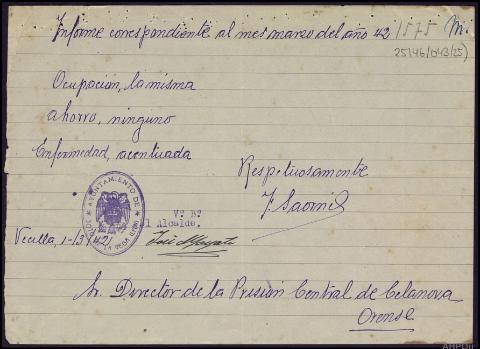 Informe correspondiente al mes marzo del año 42
1575 M.
25746/043/25)
Ocupación, la misma
ahorro, ninguno
Enfermedad, acentuada
Respetuosamente
AYUNTAMIENTO DE
Vº Bº
El Alcalde.
Yecilla, 1-3-1942
Sr. Director de la Prisión Central de Celanova
Orense
AHPOu